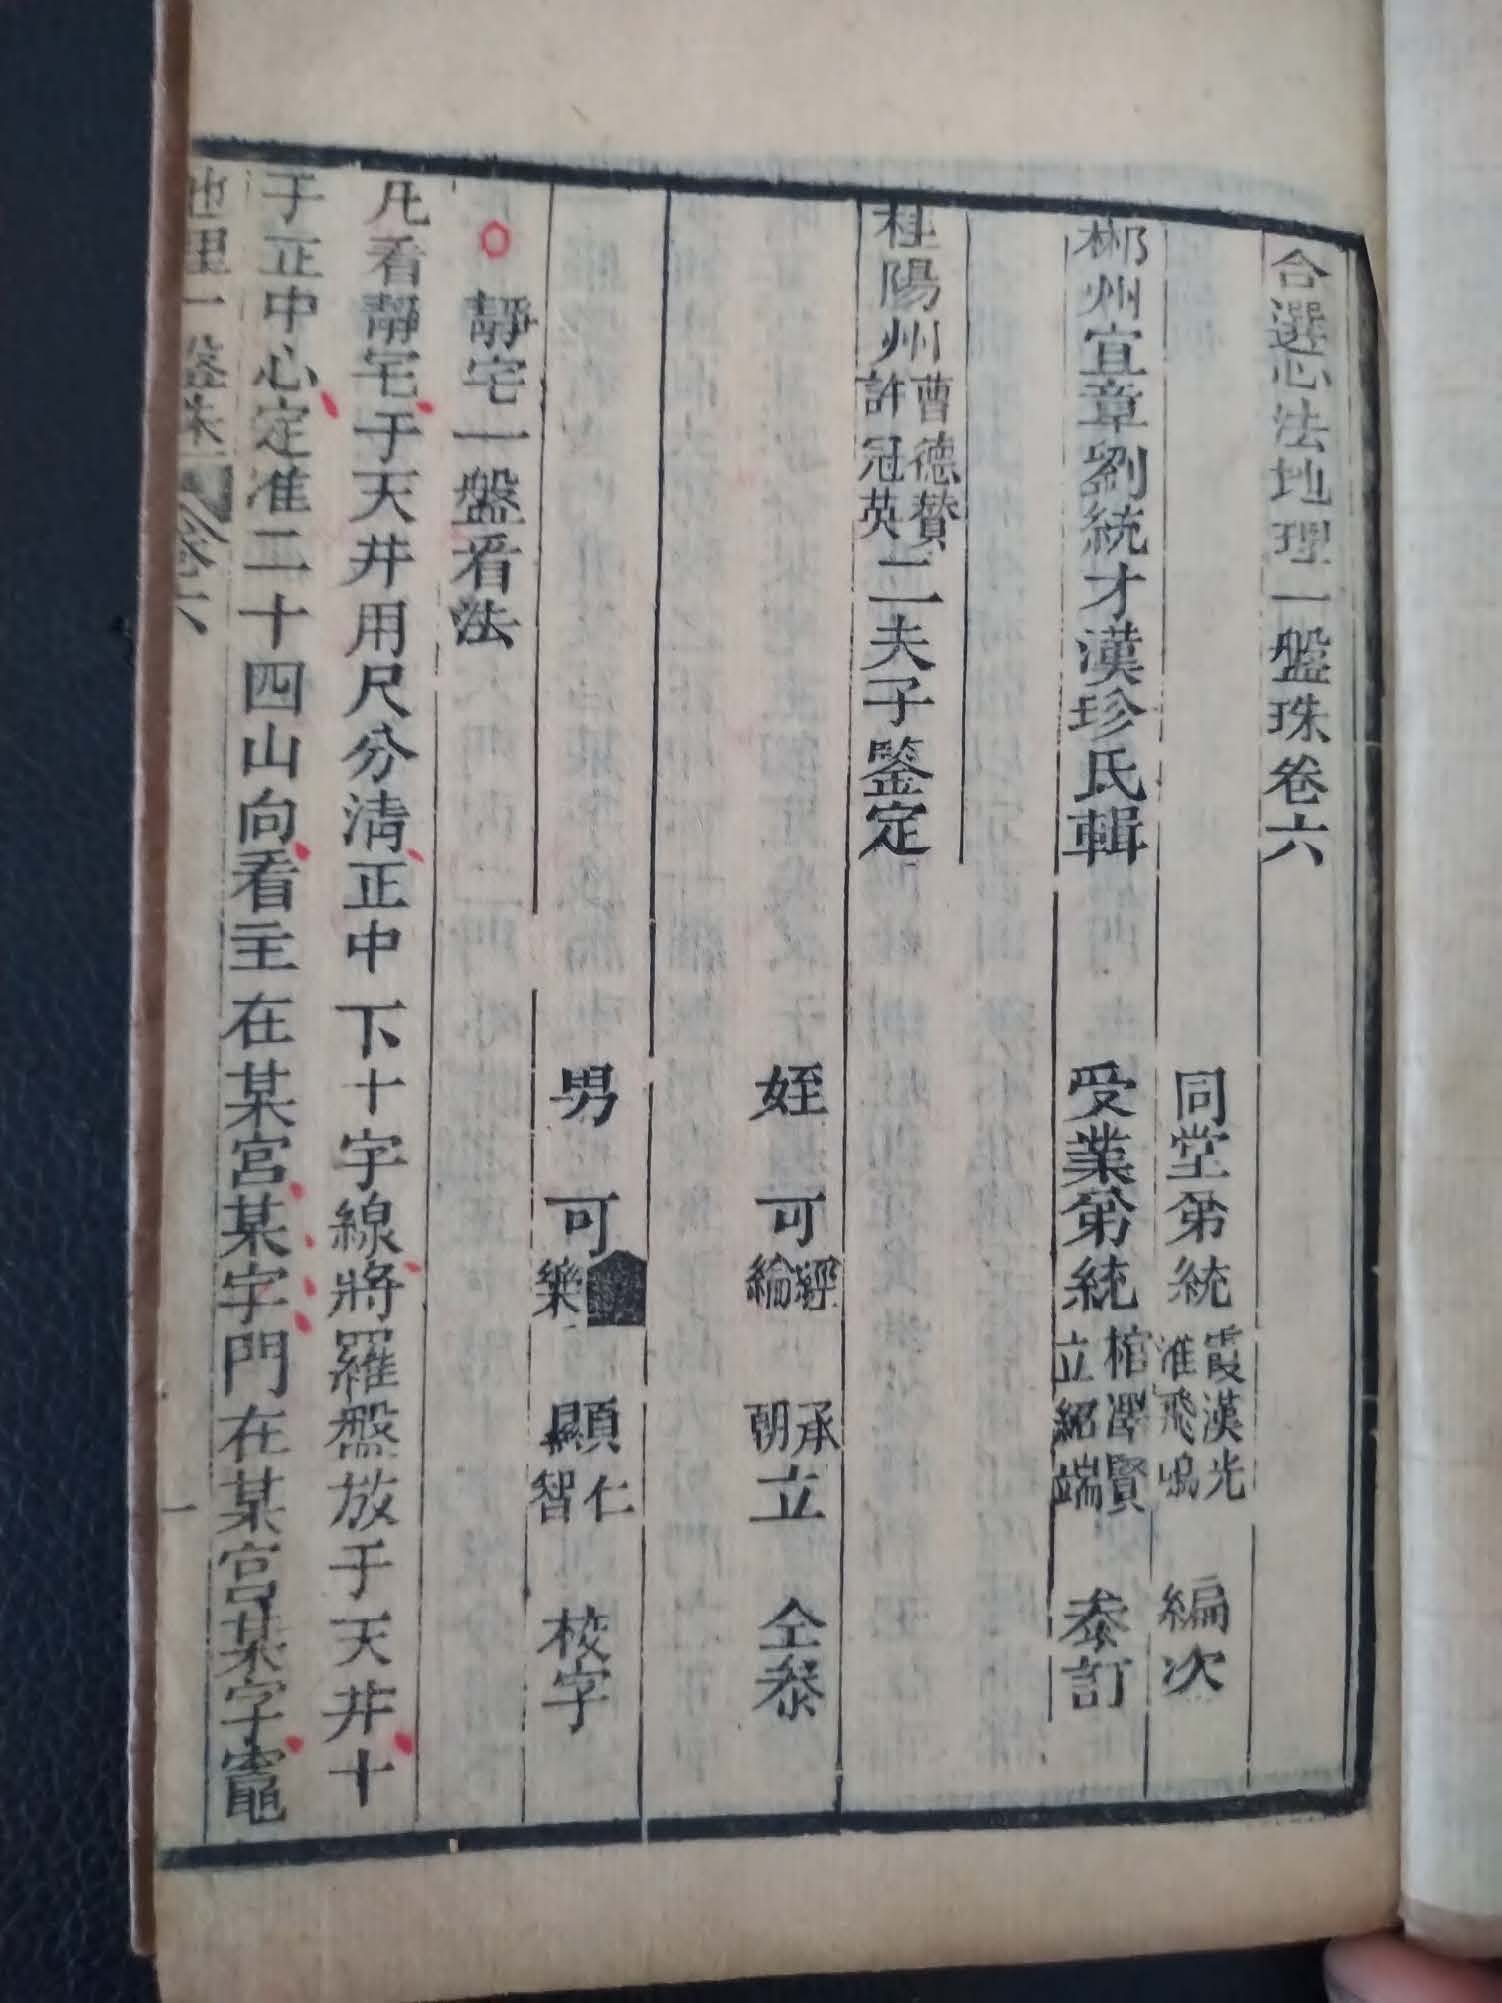 合選心法地理一盤珠卷六
同堂弟統霞漢光淮飛鳴 編次
郴州宜章劉統才漢珍氏輯 受業弟統棺澤賢立紹端 叅訂
桂陽州曹德贊許冠英二夫子鑒定
姪 可經綸 承朝立 仝叅
男 可樂 顯仁智 校字
○ 靜宅一盤看法
凡看靜宅于天井用尺分清正中下十字線將羅盤放于天井十
于正中心定准二十四山向看主在某宮某字門在某宮某字竈
地理一盤珠 卷六 一